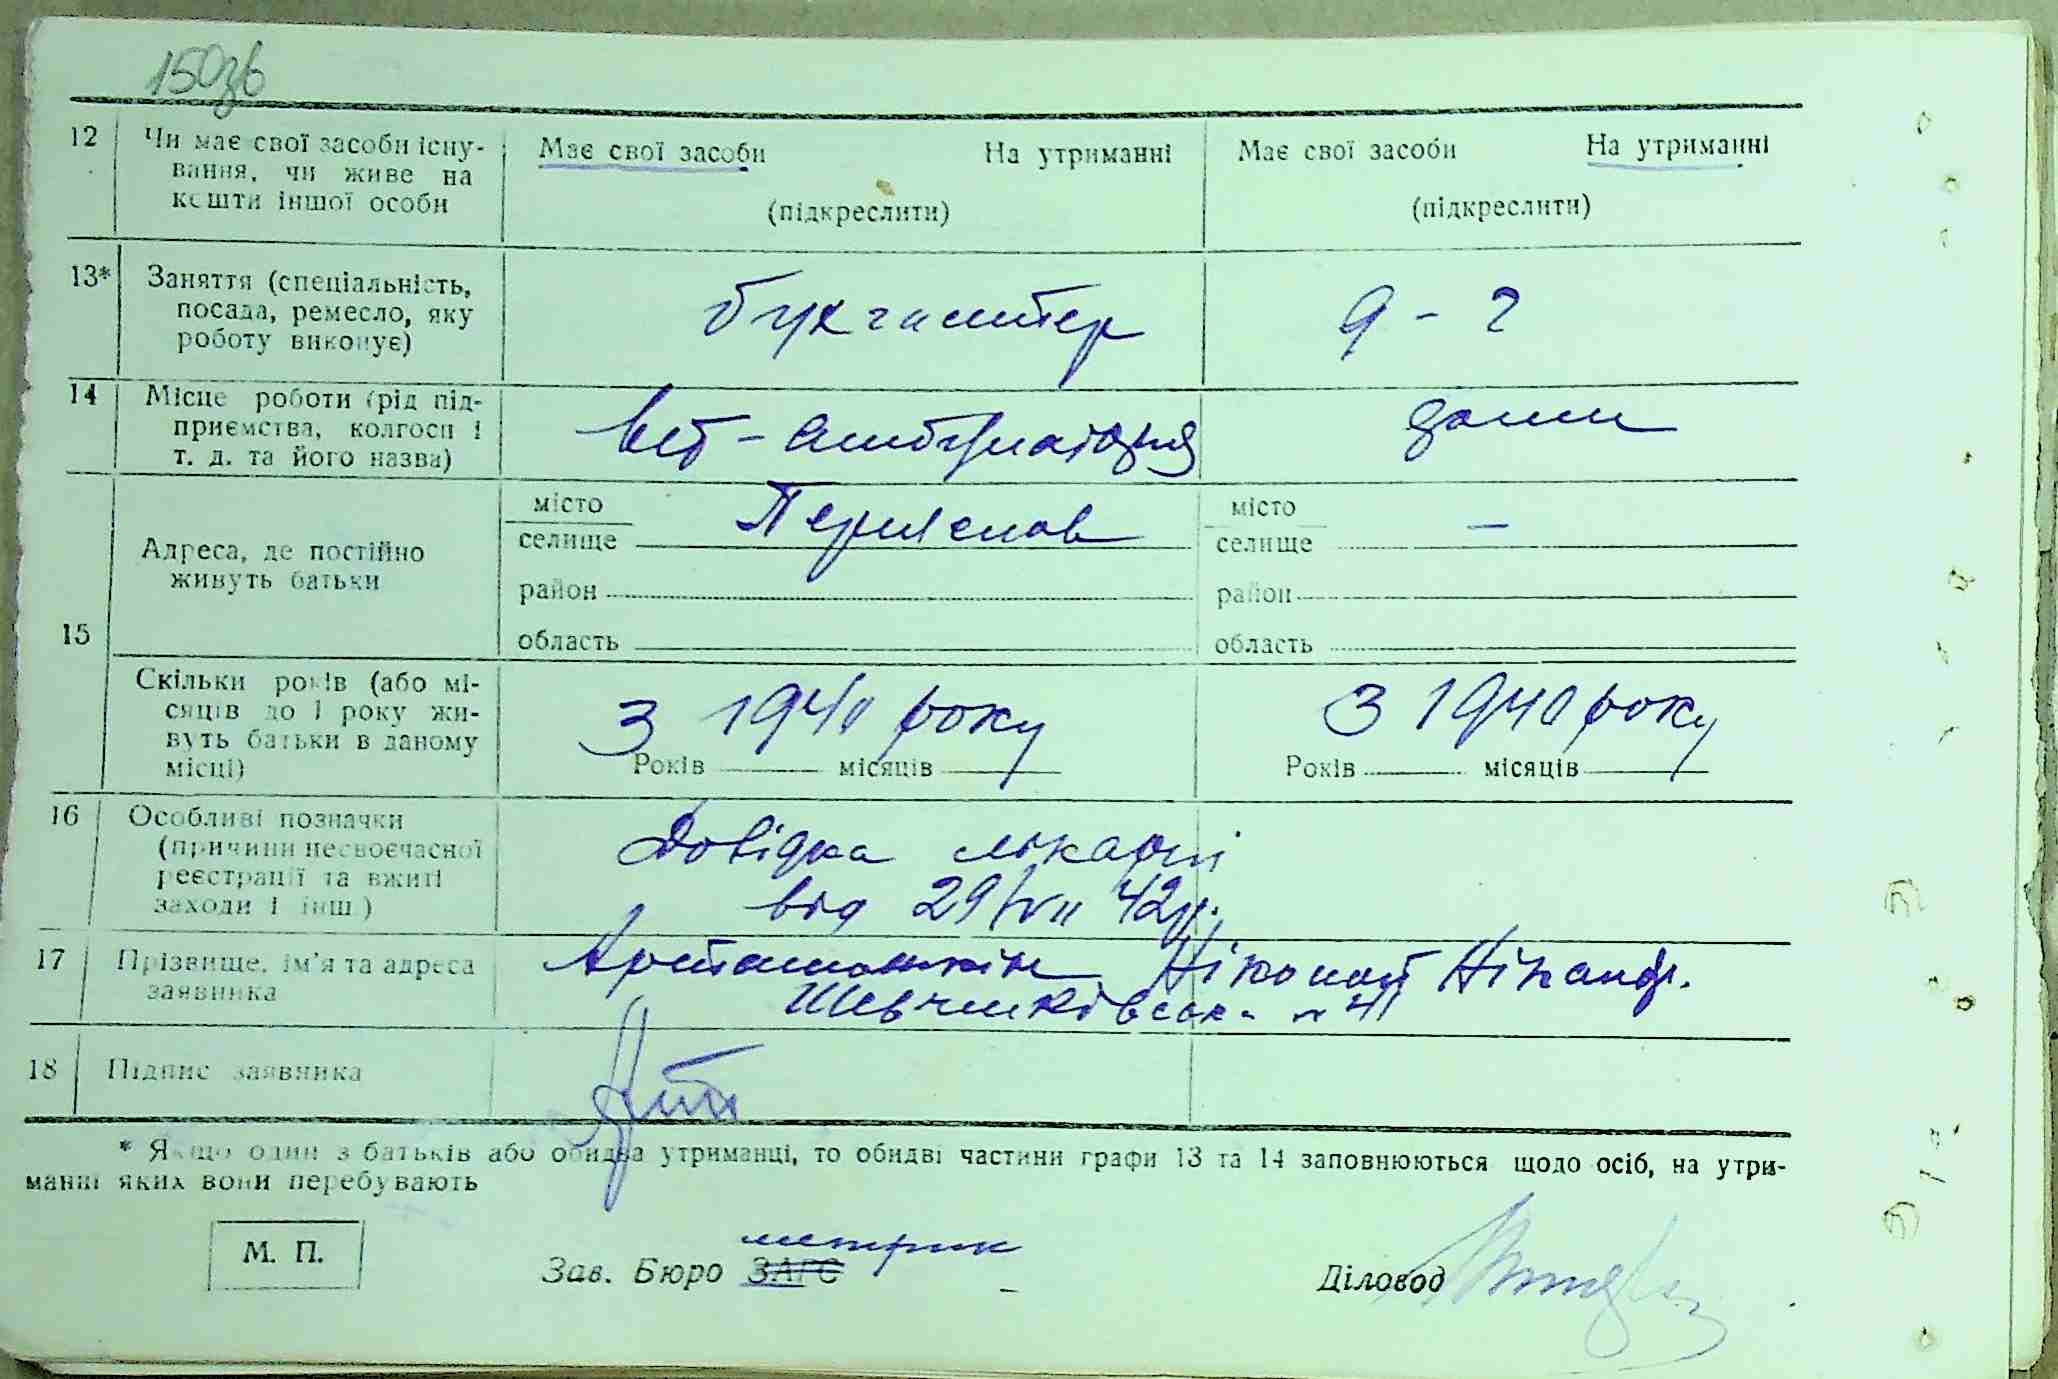 150зв
12 Чи має свої засоби існу-
вання, чи живе на
кошти іншої особи
Має свої засоби На утриманні
(підкреслити)
Має свої засоби На утриманні
(підкреслити)
13* Заняття (спеціальність,
посада, ремесло, яку
роботу виконує)
бухгалтер
д - г
14 Місце роботи (рід під-
приємства, колгосп і
т. д. та його назва)
вет-амбулаторія
дома
15 Адреса, де постійно
живуть батьки
місто
селище Переяслав
район
область
місто
селище —
район
область
Скільки років (або мі-
сяців до 1 року жи-
вуть батьки в даному
місці)
З 1940 року
Років місяців
З 1940 року
Років місяців
16 Особливі позначки
(причини несвоєчасної
реєстрації та вжиті
заходи і інш.)
Довідка лікарні
від 29/VII 42р.
17 Прізвище, ім'я та адреса
заявника
Ніканор Шевченківська 41
18 Підпис заявника
* Якщо один з батьків або обидва утриманці, то обидві частини графи 13 та 14 заповнюються щодо осіб, на утри-
манні яких вони перебувають
М. П.
метрик
Зав. Бюро ЗАГС
Діловод